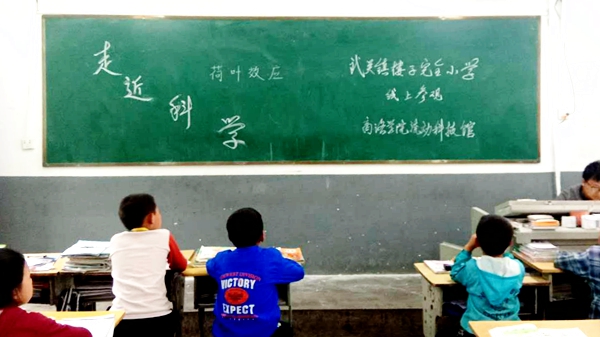 走近科学
荷叶效应
武关镇楼子完全小学
线上参观
商洛学院流动科技馆
VICTORY
EXPECT